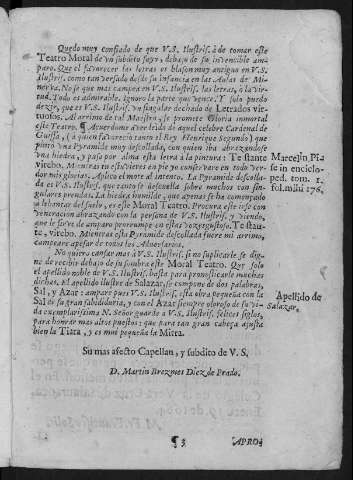 Quedo muy confiado de que V.S. Ilustris. à de tomar este
Teatro Moral de vn subdito suyo, debajo de su invencible am-
paro. Que el favorecer las letras es blason muy antiguo en V.S.
Ilustris. como tan versado desde su infancia en las Aulas de Mi-
nerva. No se que mas campea en V.S. Ilustris. las letras, ò la vir-
tud. Todo es admirable. Ignoro la parte que vence. Y solo puedo
dezir, que es V.S. Ilustris. vn singular dechado de Letrados vir-
tuosos. Al arrimo de tal Maestro, se promete Gloria inmortal
este Teatro. ¶ Acuerdome aver leido de aquel celebre Cardenal de
Guisa, (à quien favorecio tanto el Rey Henrico Segundo) que
pinto vna Pyramide muy descollada, con quien iba abrazandose
vna hiedra, y puso por alma esta letra à la pintura: Te stante
virebo. Mientras tu estuvieres en pie yo conservare en todo ver-
dor mis glorias. Aplico el mote al intento. La Pyramide descolla-
da es V.S. Ilustris. que tanto se descuella sobre muchos con sin-
gulares prendas. La hiedra humilde, que apenas se ha comenzado
à lebantar del suelo, es este Moral Teatro. Procura este ìsse con
veneracion abrazando con la persona de V.S. Ilustris. y viendo,
que le sirve de amparo prorrumpe en estas vozes gustoso. Te stan-
te, virebo. Mientras esta Pyramide descollada fuere mi arrimo,
campeare apesar de todos los Adversarios.
No quiero cansar mas à V.S. Ilustris. si no suplicarle se dig-
ne de recibir debajo de su sombra este Moral Teatro. Que solo
el apellido noble de V.S. Ilustris. basta para pronosticarle muchas
dichas. El apellido ilustre de Salazar, se compone de dos palabras,
Sal, y Azar: ampare pues V.S. Ilustris. esta obra pequeña con la
Sal de su gran sabiduduria, y con el Azar siempre oloroso de su vi-
da exemplarissima N. Señor guarde à V.S. Ilustris. felices siglos,
para honrar mas altos puestos: que para tan gran cabeça ajusta
bien la Tiara, y es mui pequeña la Mitra.
Su mas afecto Capellan, y subdito de V.S.
D. Martin Brezmes Diez de Prado.
Marcelin Pi-
se in enciclo-
ped. tom. 1.
fol. mihi 176.
Apellido de
Salazar.
¶ 3
APRO-